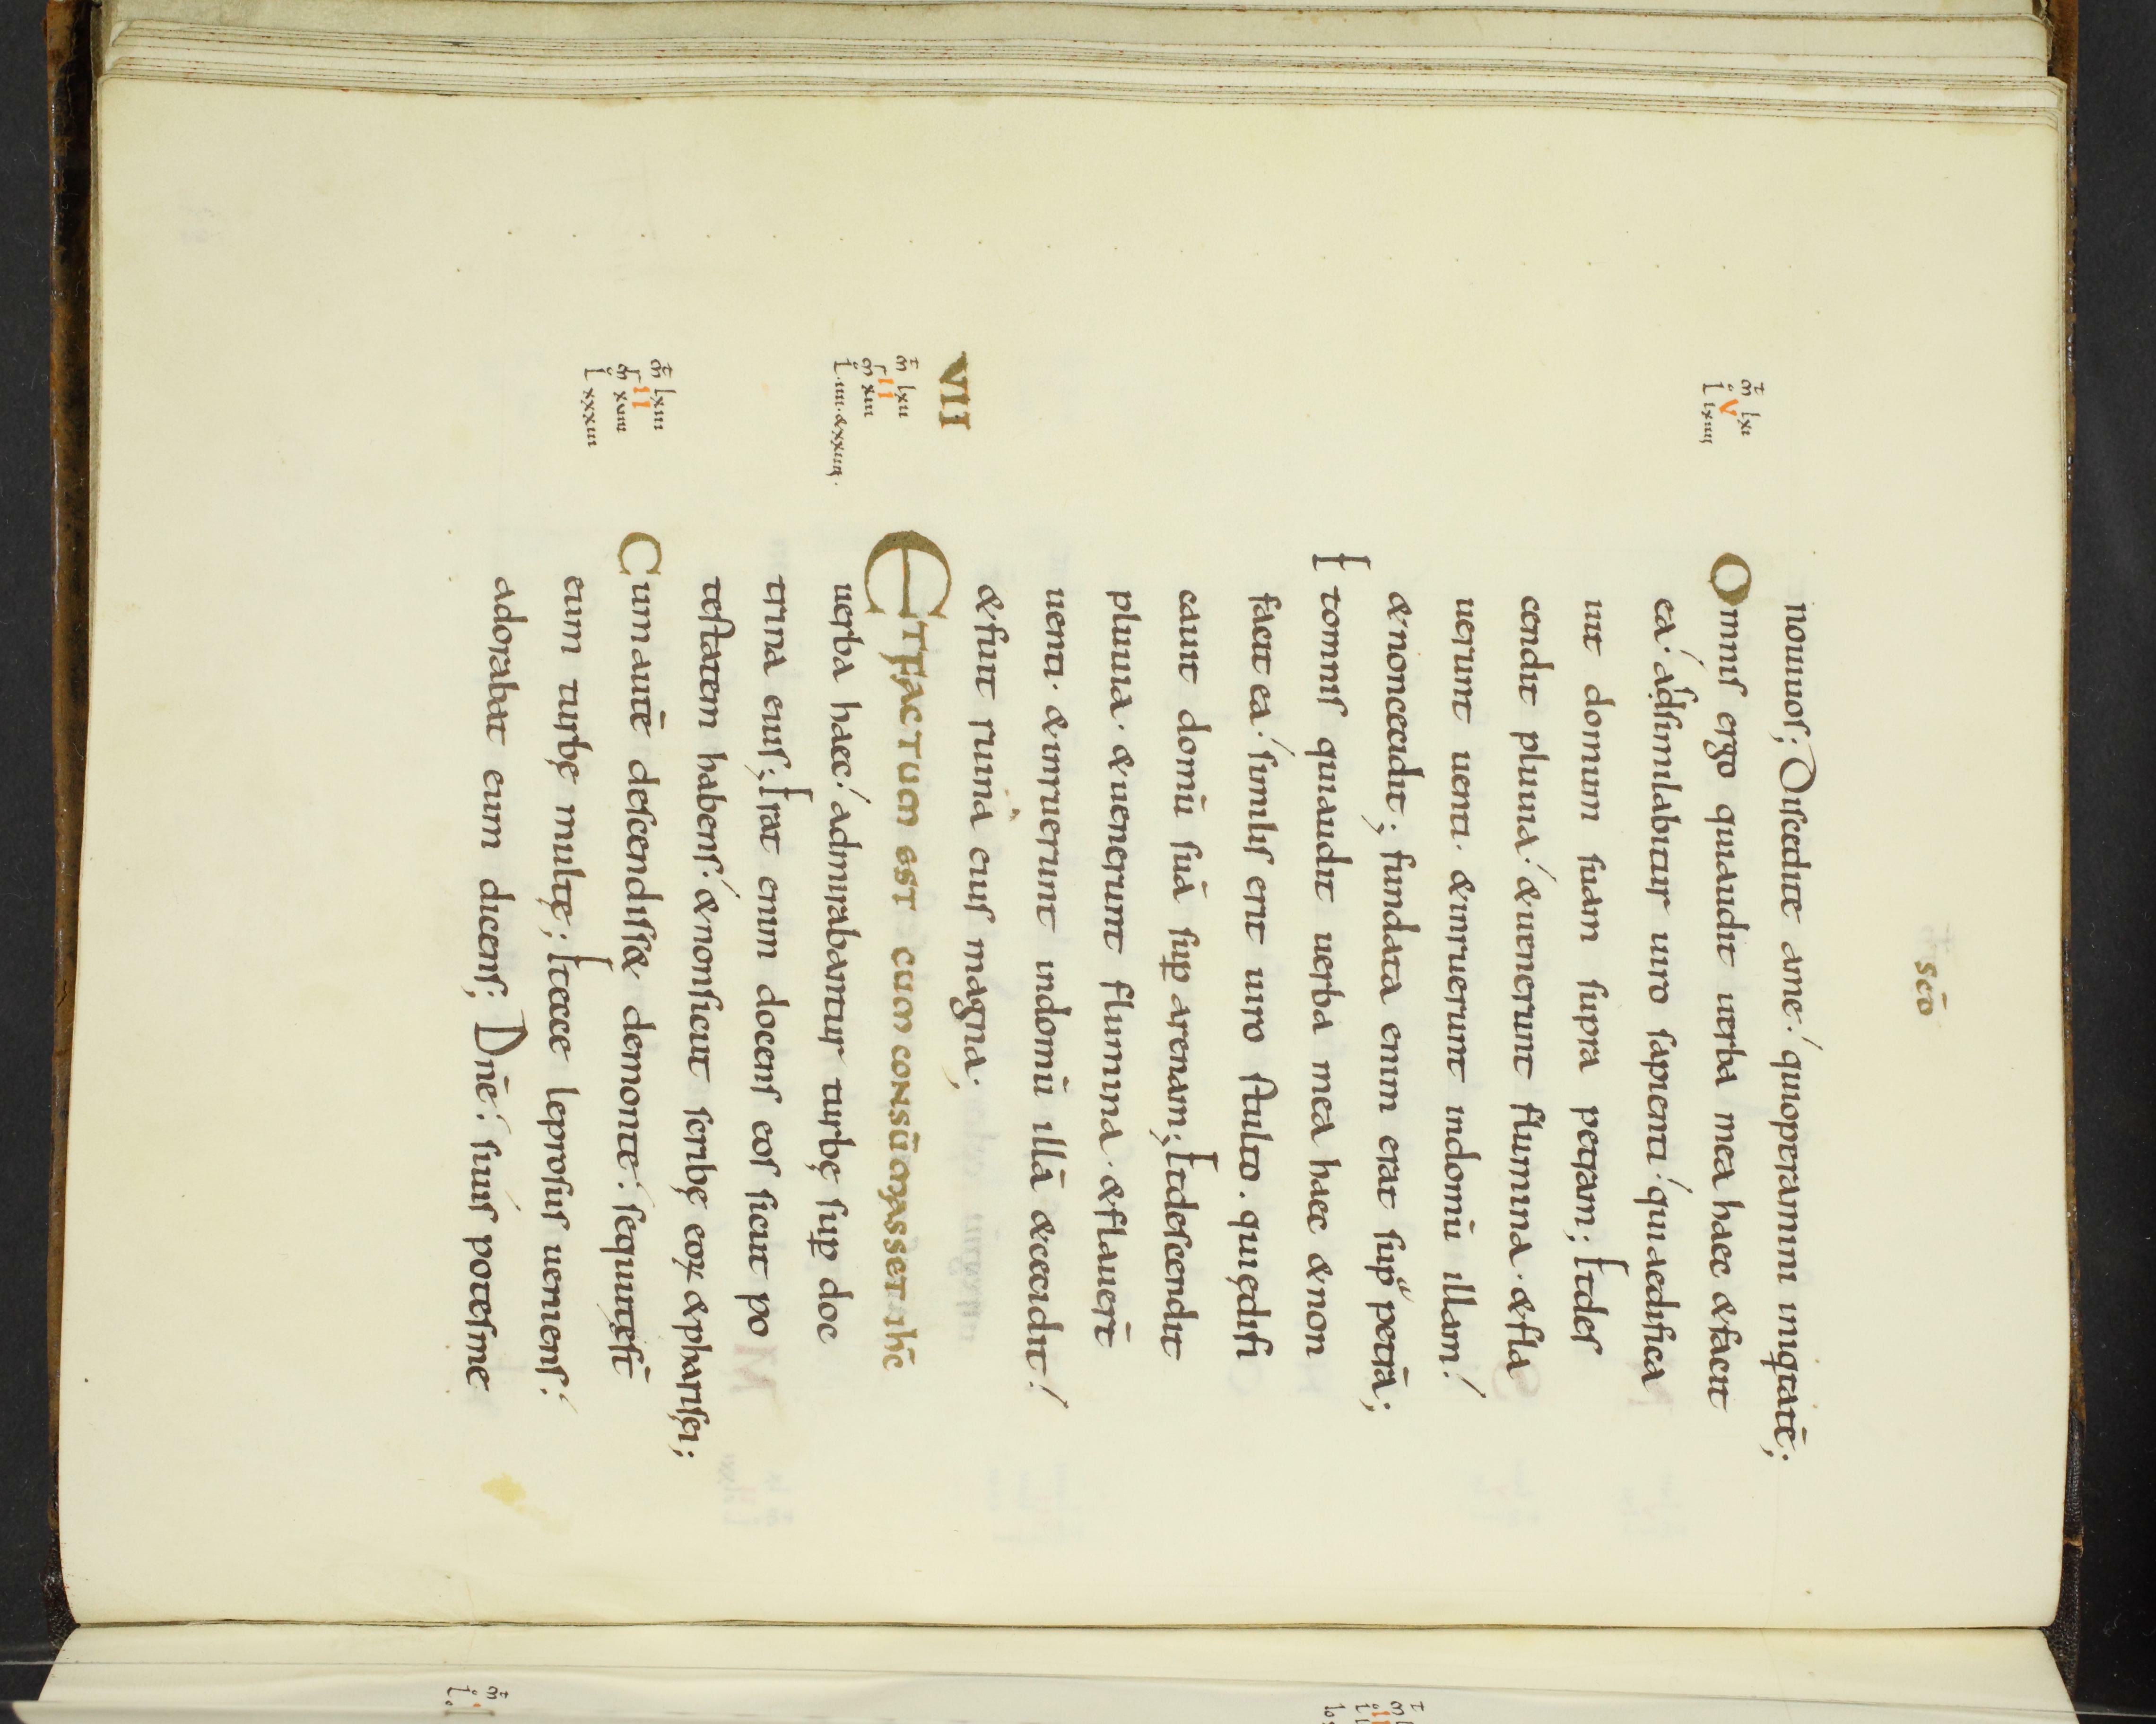 scd̄
nouiuos; Discedite ame! quioperamini iniq̇tatē;
Omnis ergo quiaudit uerba mea haec &facit
ea! adsimilabitur uiro sapienti! quiaedifica
uit domum suam supra petram; Etdes
cendit pluuia! &uenerunt flumina. &fla
uerunt uenti. &inruerunt indomū illam!
&noncecidit; fundata enim erat supᵃ petrā;
Etomnis quiaudit uerba mea haec &non
facit ea! similis erit uiro stulto. quiędifi
cauit domū suā sup̱ arenam; Etdescendit
pluuia. &uenerunt flumina. &flauer̄t
uenti. &inruerunt indomū illā &cecidit!
&fuit ruina eius magna;
VII
ETFACTUM EST CUM CONSŪMASSET ihc̄
uerba haec! admirabantur turbę sup̱ doc
trina eius; Erat enim docens eos sicut po
testatem habens! &nonsicut scribę eoꝝ &pharisęi;
Cum autē descendiss& demonte! sequutęst̄
eum turbę multę; Etecce leprosus ueniens!
adorabat eum dicens; Dn̄e! siuis potesme
m̄t lxi
V
l̊ lxiiii
m̄t lxii
II
mr̊ xiii
l̊ .iiii.&xxiiii.
m̄t lxiii
II
mr̊ xviii
l̊ xxxiii